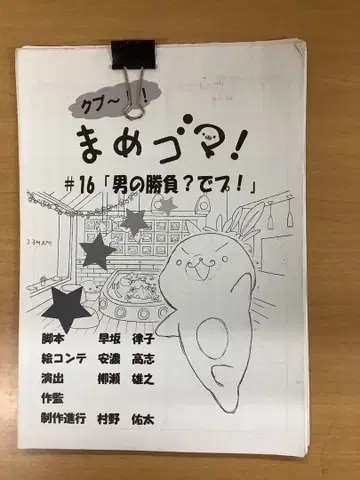 クプ〜!!
まめゴマ!
#16「男の勝負?でプ!」
7:34AM
脚本 早坂 律子
絵コンテ 安濃 高志
演出 柳瀬 雄之
作監
制作進行 村野 佑太